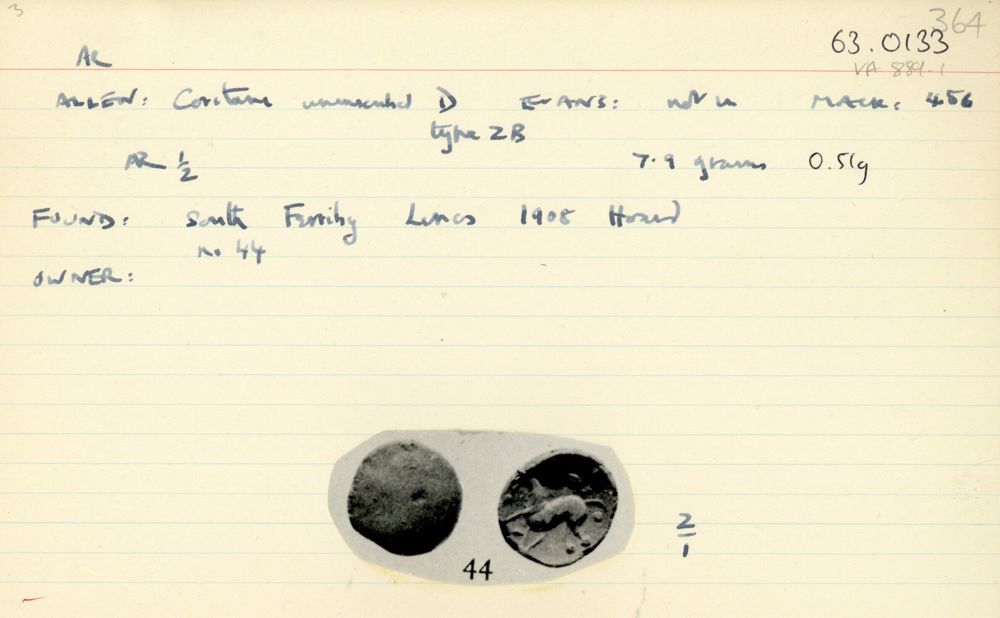 3
364
63.0133
AR
VA 884-1
ALLEN: Coritani uninscribed D EVANS: not in MACK: 456
type 2B
AR 1/2 7.9 grains 0.51g
FOUND: South Ferriby Lincs 1908 Hoard
no 44
OWNER:
44
2/1